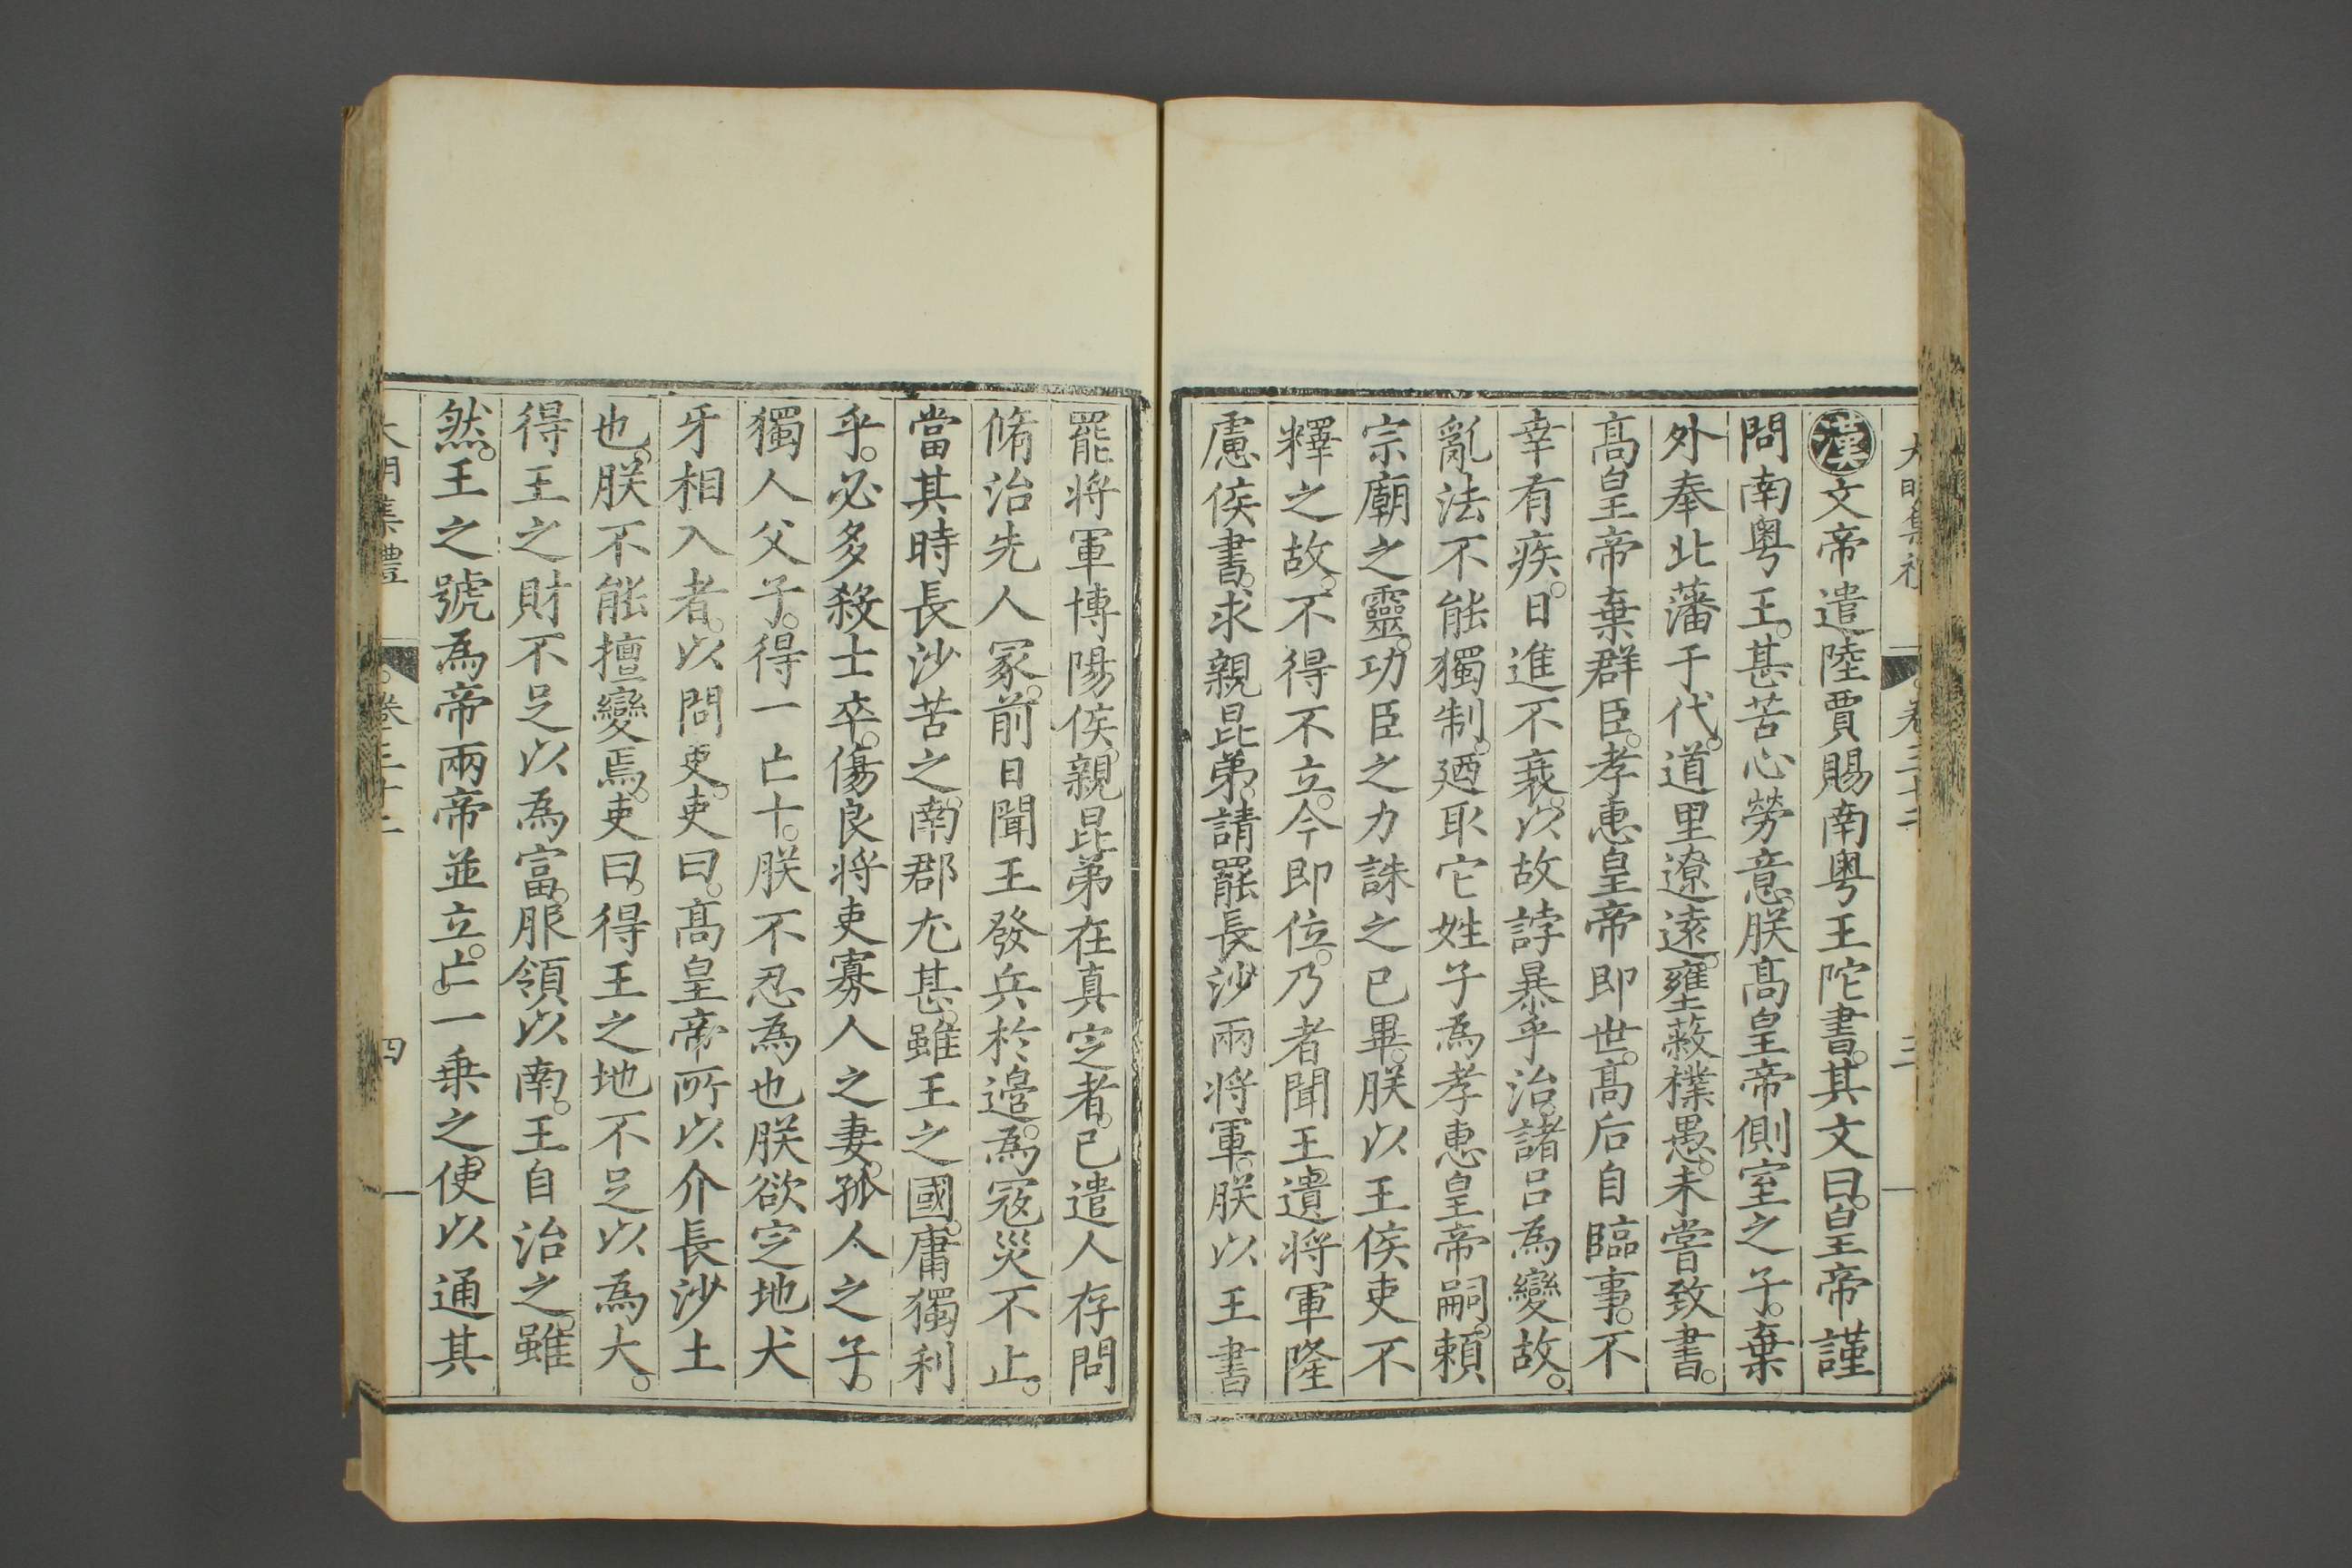 漢文帝遣陸賈賜南粤王陀書。其文曰。皇帝謹
問南粤王。甚苦心勞意。朕髙皇帝側室之子。棄
外奉北藩于代。道里遼遠。壅蔽樸愚。未嘗致書。
髙皇帝棄群臣。孝惠皇帝即世。髙后自臨事。不
幸有疾。日進不衰。以故誖暴乎治。諸吕為變故。
亂法不能獨制。廼取它姓子為孝惠皇帝嗣。頼
宗廟之靈。功臣之力誅之已畢。朕以王侯吏不
釋之故。不得不立。今即位。乃者聞王遺將軍隆
慮侯書。求親昆弟。請罷長沙兩将軍。朕以王書
罷将軍博陽侯。親昆弟在真定者。已遣人存問
脩治先人冢。前日聞王發兵於邉。為冦災不止。
當其時長沙苦之。南郡尤甚。雖王之國。庸獨利
乎。必多殺士卒。傷良将吏寡人之妻。孤人之子。
獨人父子。得一亡十。朕不忍為也朕欲定地犬
牙相入者。以問吏。吏曰。髙皇帝所以介長沙土
也。朕不能擅變焉。吏曰。得王之地不足以為大。
得王之財不足以為富。服領以南。王自治之。雖
然。王之號為帝兩帝並立。亡一乗之使以通其
大明集禮 卷三十二 四